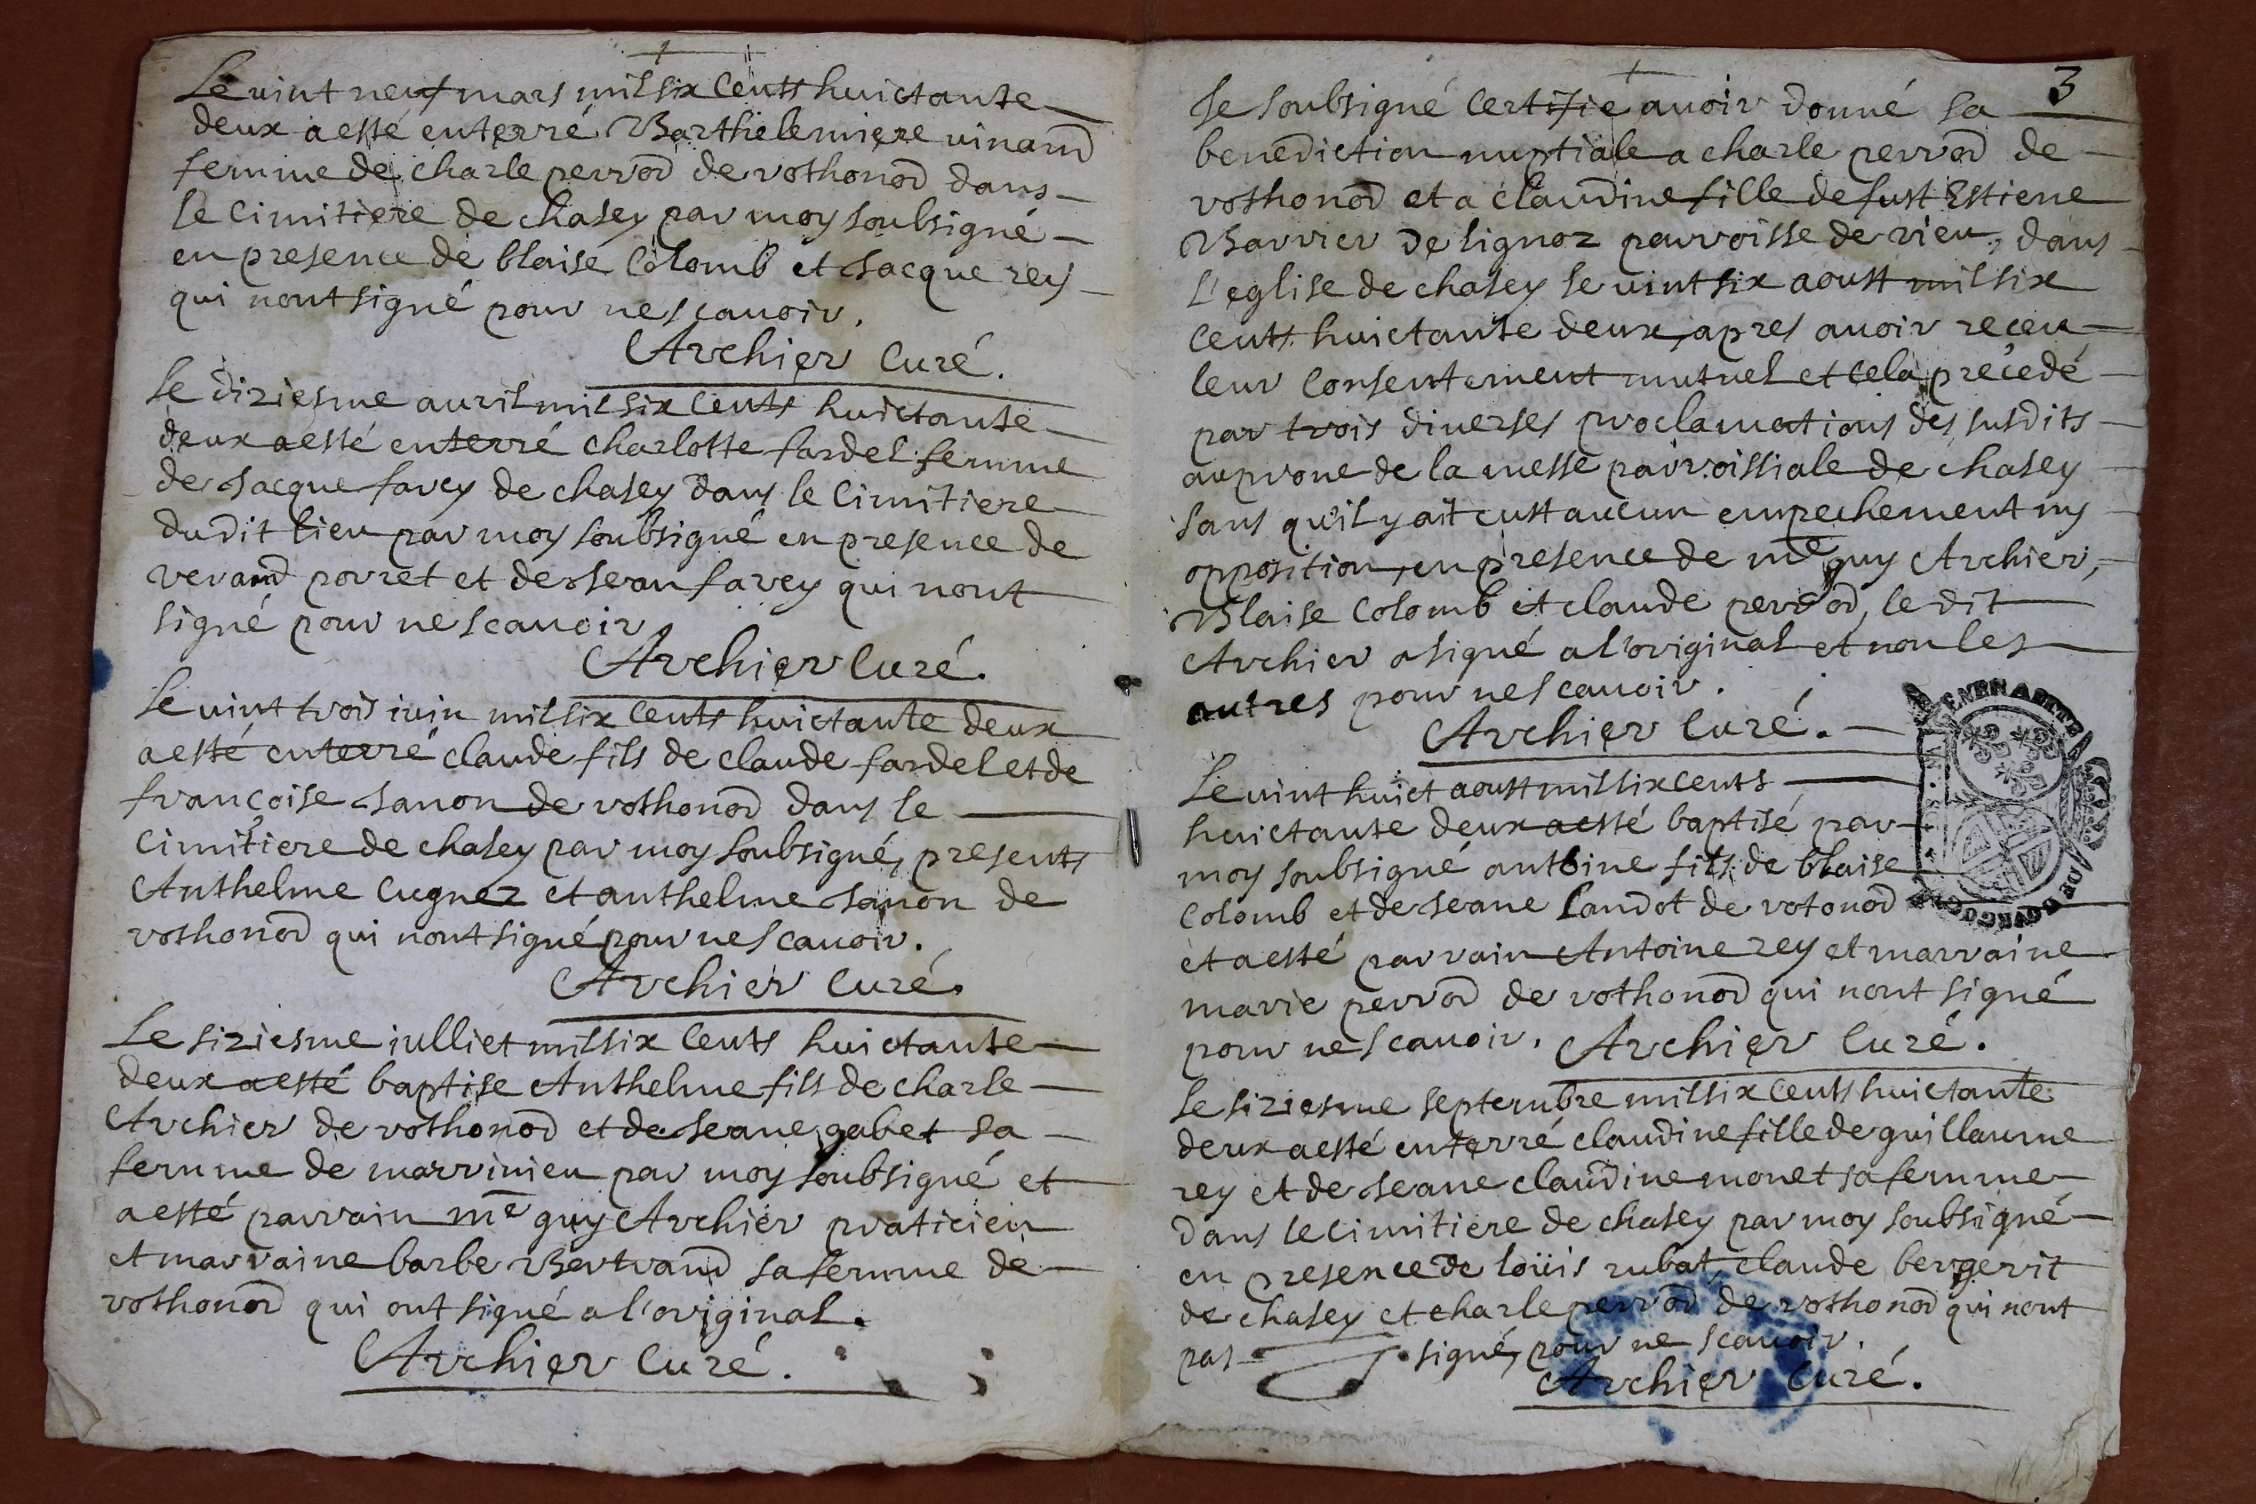 Le vint neuf mars mil six cents huictante
deux a esté enterré Barthelemiere vinand
femme de charle perrod de vothonod dans
le cimitiere de chasey par moy soubsigné
en presence de blaise Colomb et Jacque rey
qui nont signé pour ne scavoir.
Archier Curé.
Le diziesme auril mil six cents huictante
deux a esté enterré charlotte fardel femme
de Jacque favey de chasey dans le Cimitiere
dudit lieu par moy soubsigné en presence de
verand porret et de Jean favey qui nont
signé pour ne scauoir
Archier Curé.
Le vint trois iuin mil six cents huictante deux
a esté enterré claude fils de claude fardel et de
françoise Janon de vothonod dans le
Cimitiere de chasey par moy soubsigné, presents
Anthelme Cugnez et anthelme Janon de
vothonod qui nont signé pour ne scauoir.
Archier Curé.
Le siziesme iulliet mil six cents huictante
deux a esté baptise Anthelme fils de charle
Archier de vothonod et de Jeane gabet sa
femme de marvinieu par moy soubsigné et
a esté parrain me guy Archier praticien
et marraine barbe Bertrand sa femme de
vothonod qui ont signé a l'original.
Archier Curé.
3
Je soubsigné certifie auoir donné la
benediction nuptiale a charle perrod de
vothonod et a claudine fille de fust Estiene
Barrier de lignoz parroisse de vieu, dans
l'eglise de chasey le uint six aoust mil six
cents huictante deux, apres auoir receu
leur Consentement mutuel et cela precedé
par trois diuerses proclamations des susdits
au prone de la messe parroissiale de chasey
sans qu'il y ait eust aucun empechement ny
opposition, en presence de me guy Archier,
Blaise Colomb et claude perrod, le dit
Archier a signé a l'original et non les
autres pour ne scauoir.
Archier Curé.
Le uint huict aoust mil six cents
huictante deux a esté baptisé par
moy soubsigné antoine fils de blaise
Colomb et de Jeane Landot de votonod
et a esté parrain Antoine rey et marraine
marie perrod de vothonod qui nont signé
pour ne scauoir. Archier Curé.
Le siziesme septembre mil six cents huictante
deux a esté enterré claudine fille de guillaume
rey et de Jeane claudine monet sa femme
dans le Cimitiere de chasey par moy soubsigné
en presence de loüis rubat, claude bergerit
de chasey et charle perrod de vothonod qui nont
pas signé, pour ne scauoir.
Archier Curé.